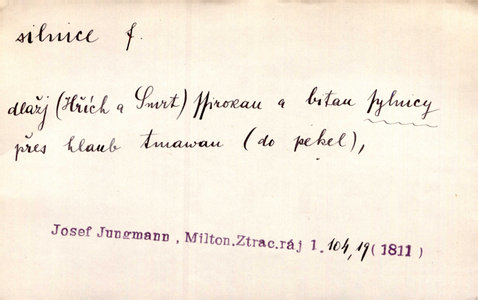 silnice f.
dlažj (Hřích a Smrt) ssirokau a bitau sylnicy
přes hlaub tmawau (do pekel),
Josef Jungmann, Milton.Ztrac.ráj 1. 104,19 (1811)